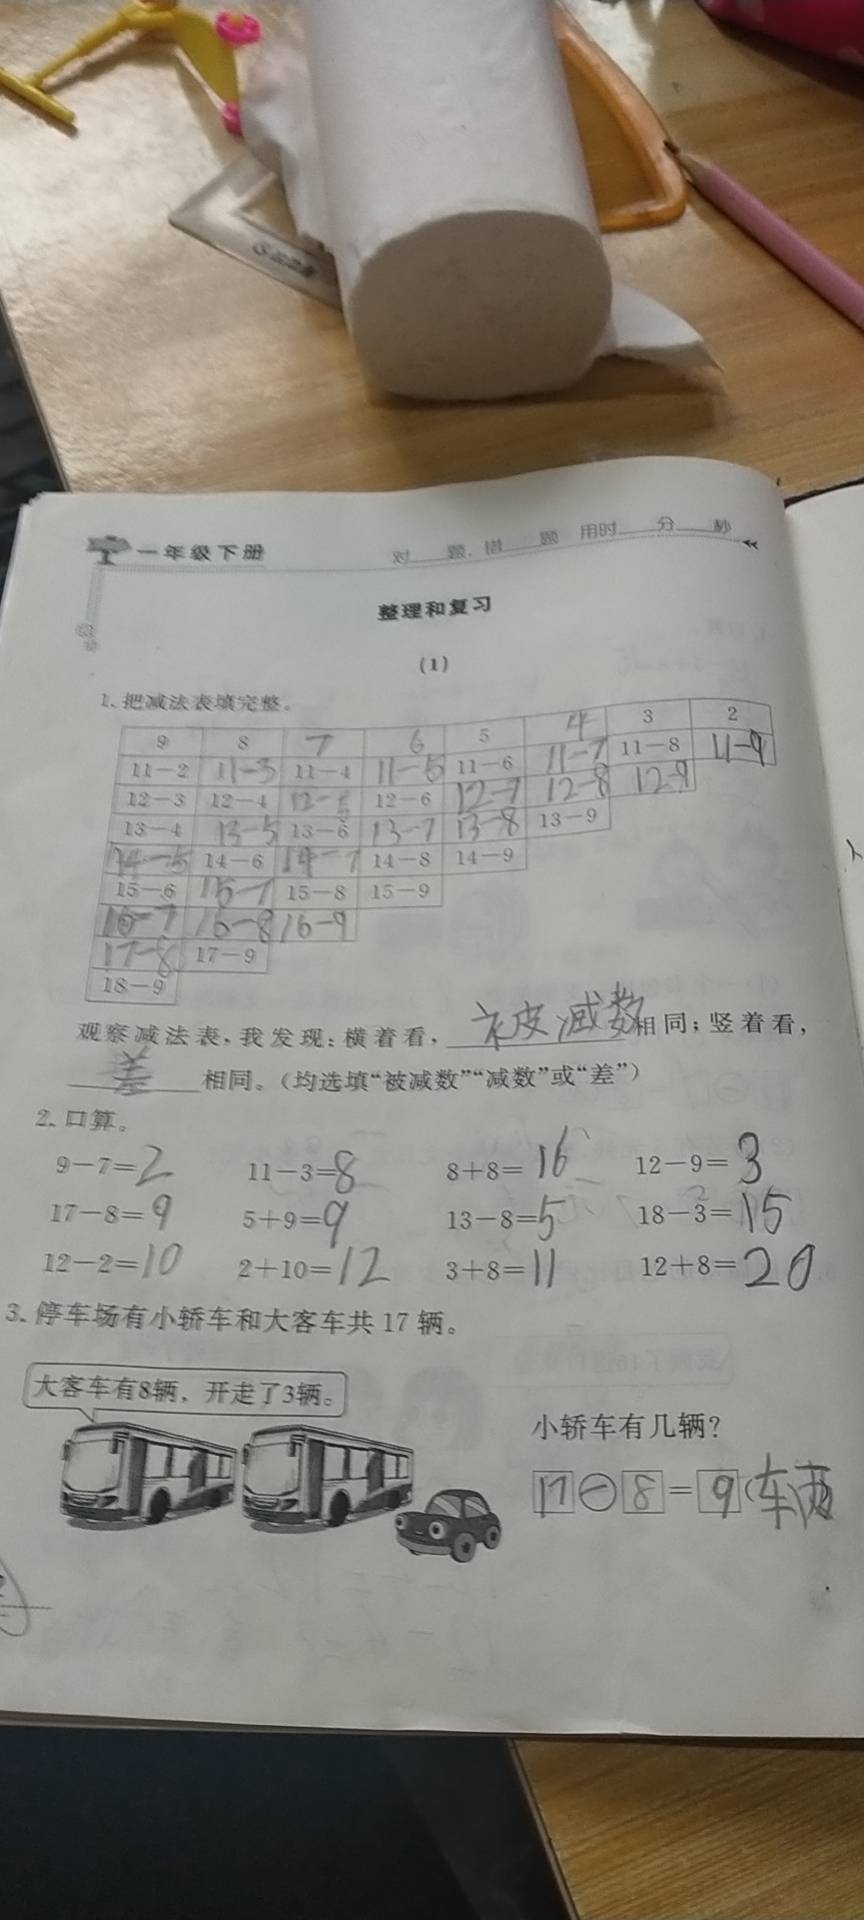 一年级下册 对____题，错____题 用时____分____秒
整理和复习
（1）
1. 把减法表填完整。
9 8 7 6 5 4 3 2
11－2 11－3 11－4 11－5 11－6 11－7 11－8 11－9
12－3 12－4 12－5 12－6 12－7 12－8 12－9
13－4 13－5 13－6 13－7 13－8 13－9
14－5 14－6 14－7 14－8 14－9
15－6 15－7 15－8 15－9
16－7 16－8 16－9
17－8 17－9
18－9
观察减法表，我发现：横着看，被减数相同；竖着看，
差相同。（均选填“被减数”“减数”或“差”）
2. 口算。
9－7＝2 11－3＝8 8＋8＝16 12－9＝3
17－8＝9 5＋9＝9 13－8＝5 18－3＝15
12－2＝10 2＋10＝12 3＋8＝11 12＋8＝20
3. 停车场有小轿车和大客车共 17 辆。
大客车有8辆，开走了3辆。
小轿车有几辆？
17－8＝9（辆）